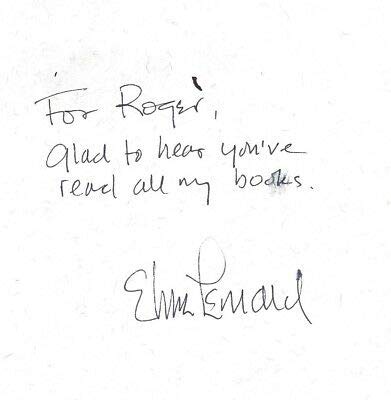 For Roger,
Glad to hear you've
read all my books.
Elmore Leonard